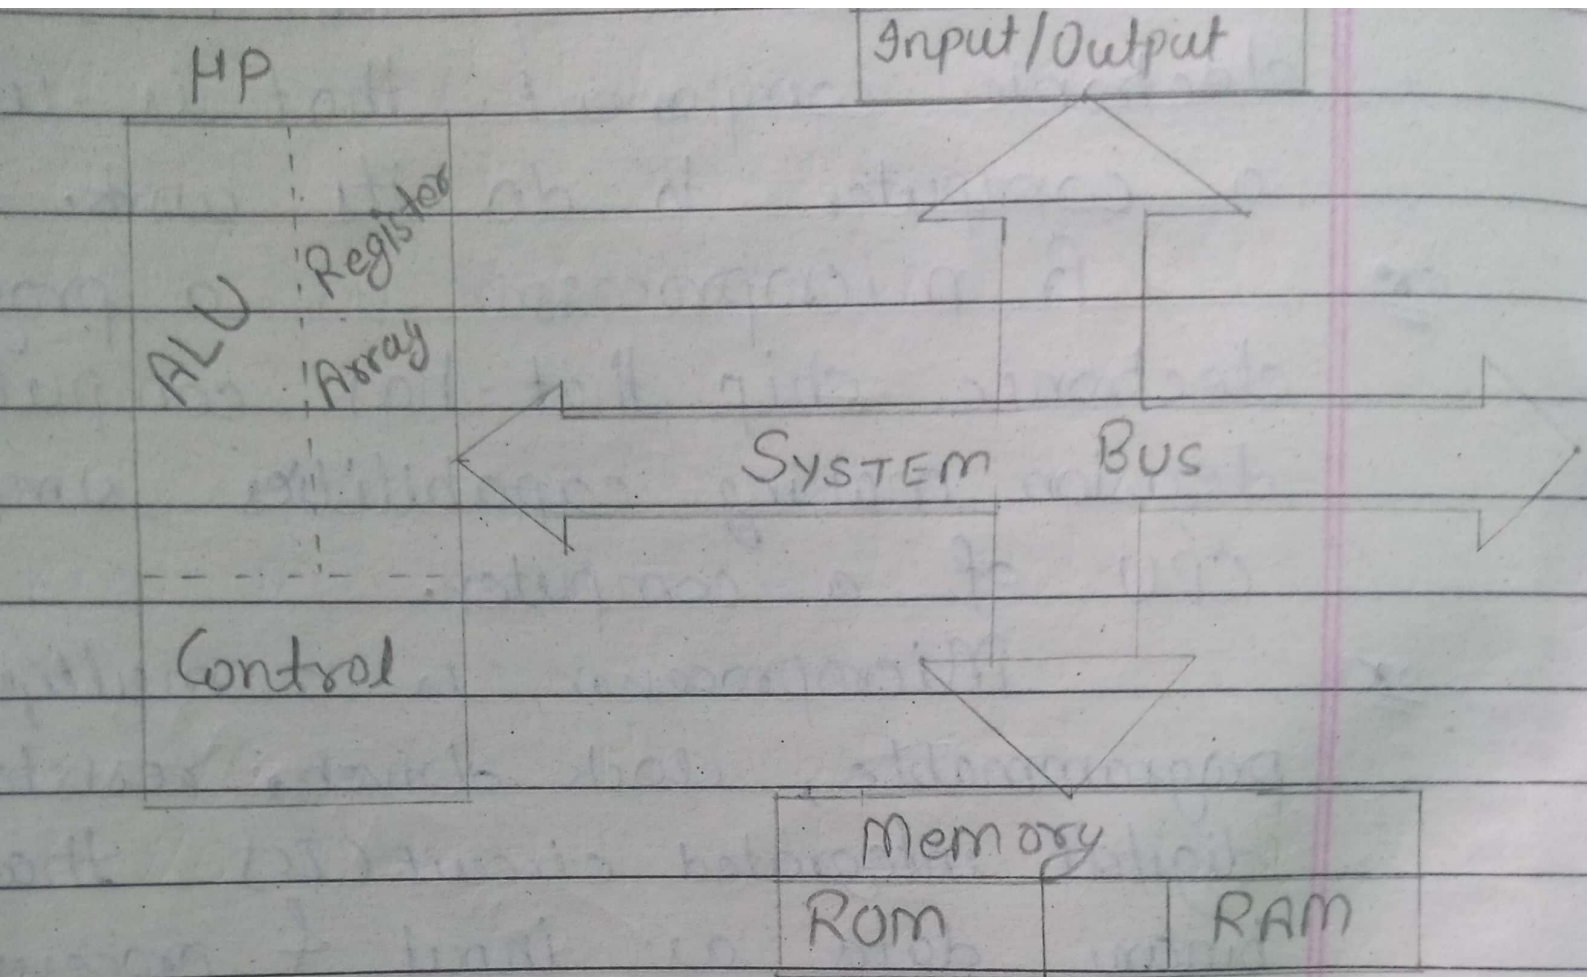 Input/Output
μP
ALU
Register
Array
SYSTEM BUS
Control
Memory
ROM
RAM